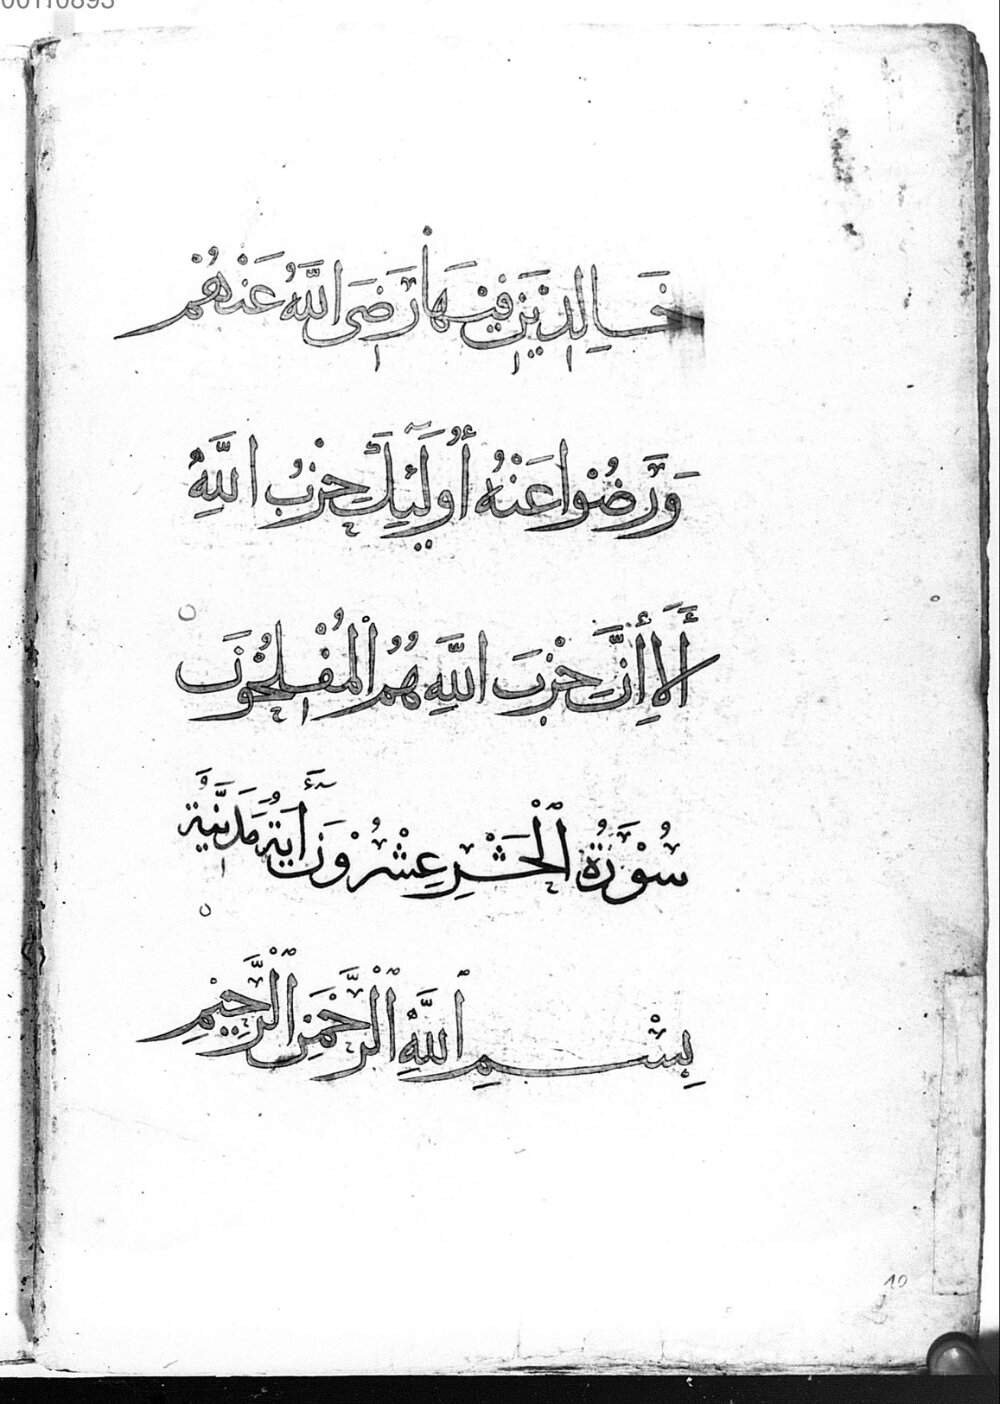 00110893
خَالِدِيْنَ فِيْهَا رَضِىَ اللَّهُ عَنْهُمْ
وَرَضُوْا عَنْهُ أُولَٓئِكَ حِزْبُ اللَّهِ
أَلَا إِنَّ حِزْبَ اللَّهِ هُمُ الْمُفْلِحُوْنَ
سُوْرَةُ الْحَشْرِ عِشْرُوْنَ أٓيَةً مَدَنِيَّةٌ
بِسْمِ اللَّهِ الرَّحْمَنِ الرَّحِيْمِ
10